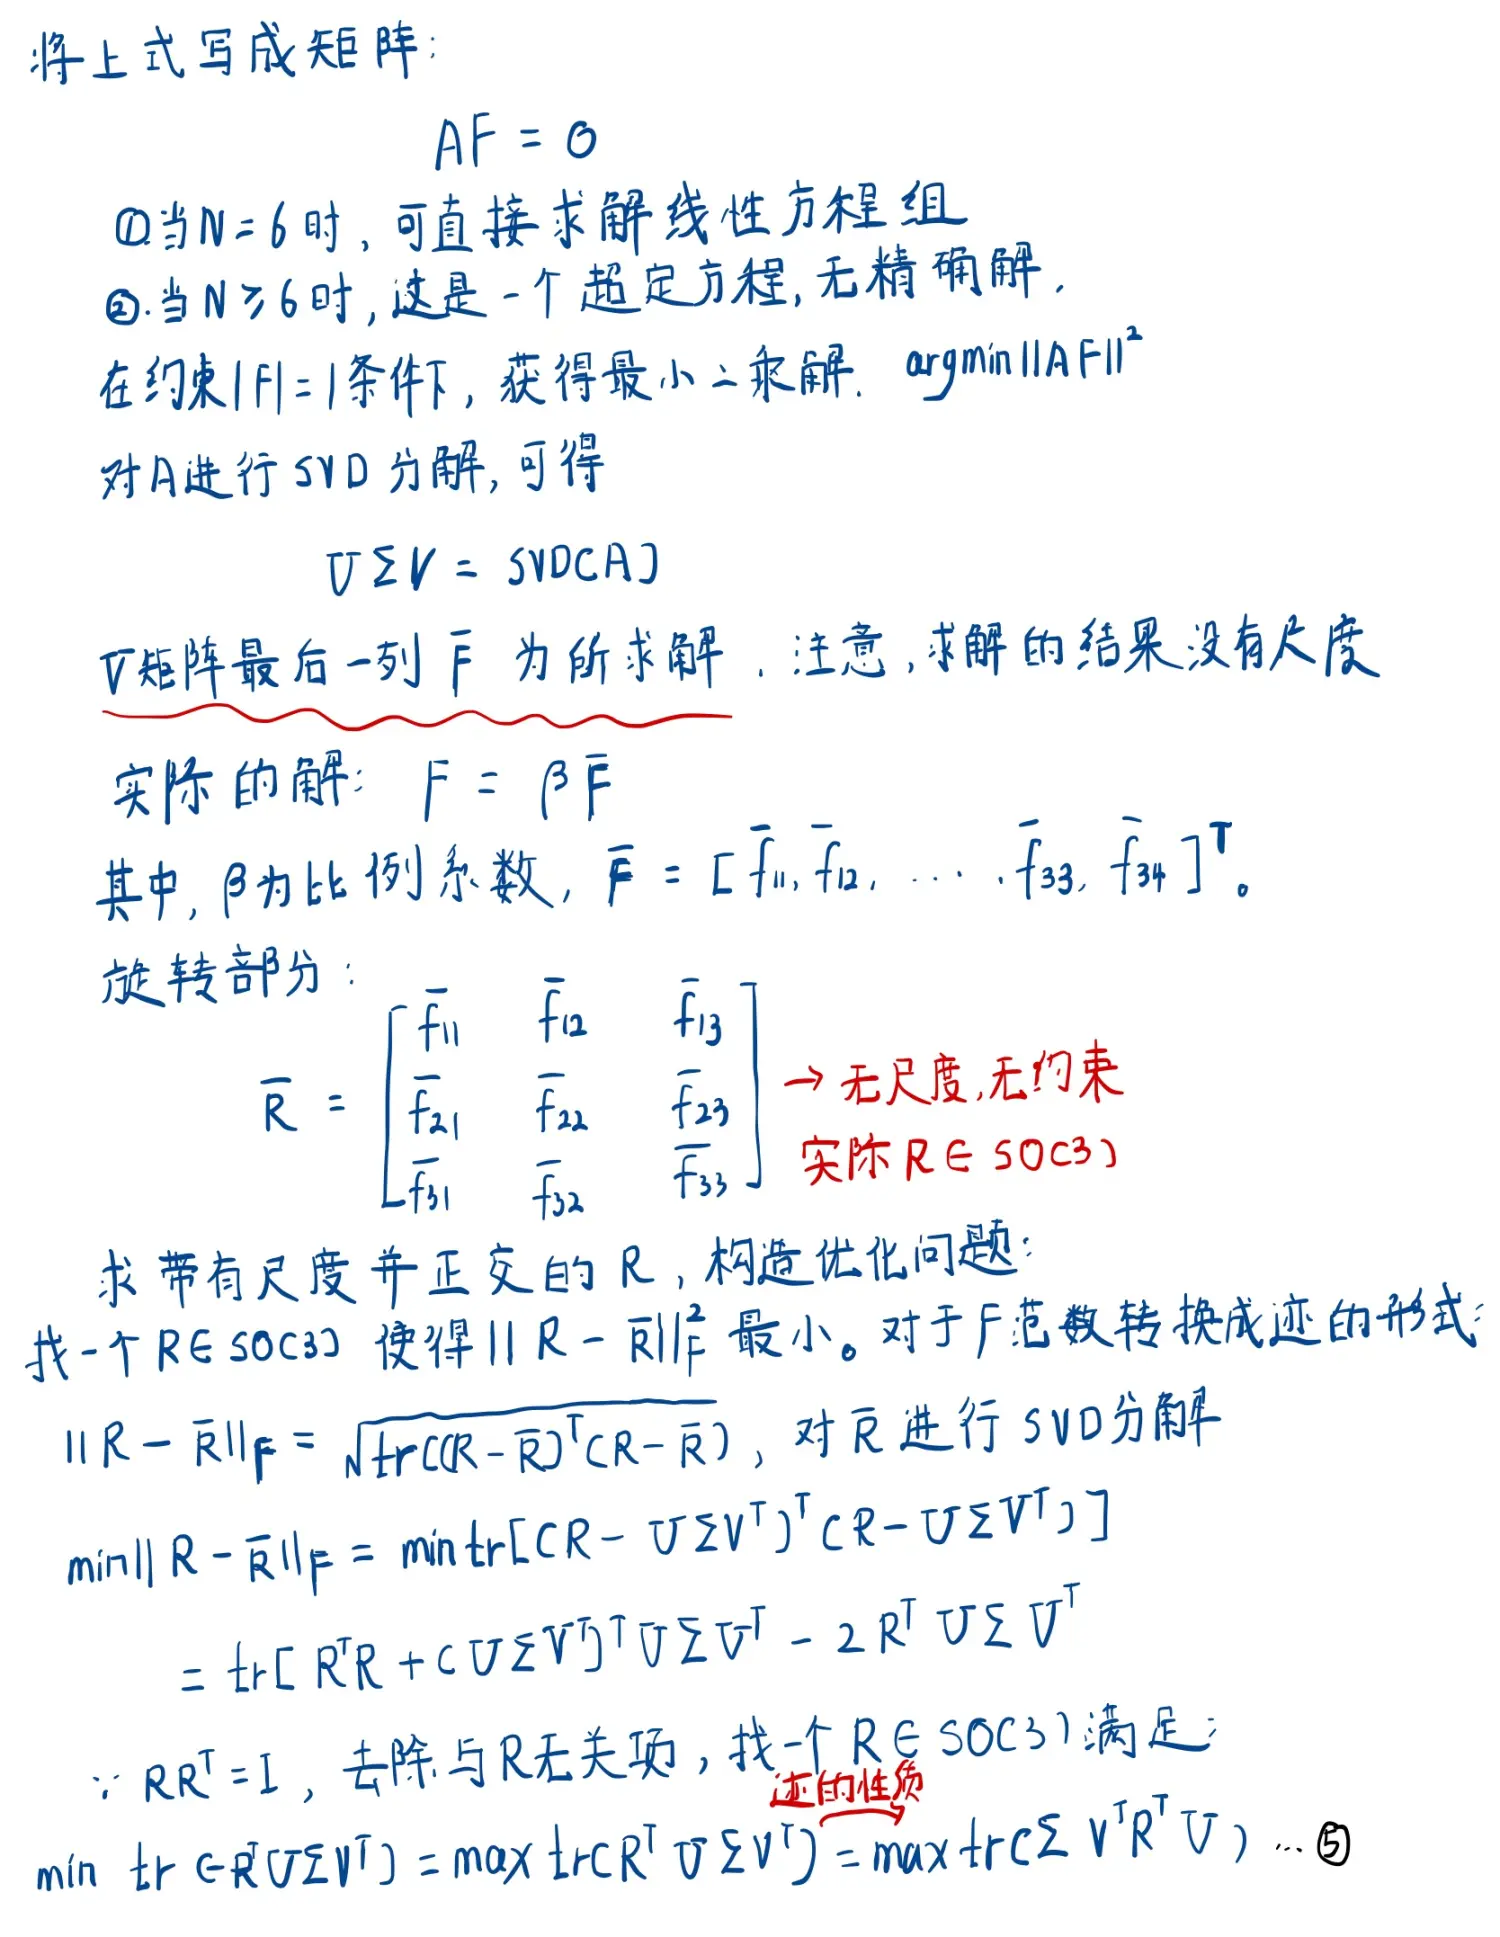 将上式写成矩阵:
AF = 0
①.当N=6时,可直接求解线性方程组
②.当N≥6时,这是一个超定方程,无精确解.
在约束|F|=1条件下,获得最小二乘解. argmin||AF||²
对A进行SVD分解,可得
UΣV = SVD(A)
V矩阵最后一列 F̄ 为所求解.注意,求解的结果没有尺度
实际的解: F = βF̄
其中,β为比例系数, F̄ = [f̄₁₁, f̄₁₂, ....,f̄₃₃, f̄₃₄]ᵀ。
旋转部分:
R̄ = [f̄₁₁ f̄₁₂ f̄₁₃
f̄₂₁ f̄₂₂ f̄₂₃
f̄₃₁ f̄₃₂ f̄₃₃]
→无尺度,无约束
实际R∈SO(3)
求带有尺度并正交的R,构造优化问题:
找一个R∈SO(3) 使得||R-R̄||²_F 最小。对于F范数转换成迹的形式:
||R-R̄||_F = √tr((R-R̄)ᵀ(R-R̄)), 对R̄进行SVD分解
min||R-R̄||_F = mintr[(R-UΣVᵀ)ᵀ(R-UΣVᵀ)]
= tr[RᵀR+(UΣVᵀ)ᵀUΣVᵀ-2RᵀUΣVᵀ
∵ RRᵀ=I, 去除与R无关项,找一个R∈SO(3)满足:
迹的性质
min tr(-RᵀUΣVᵀ) = max tr(RᵀUΣVᵀ) = max tr(Σ VᵀRᵀU) ...⑤